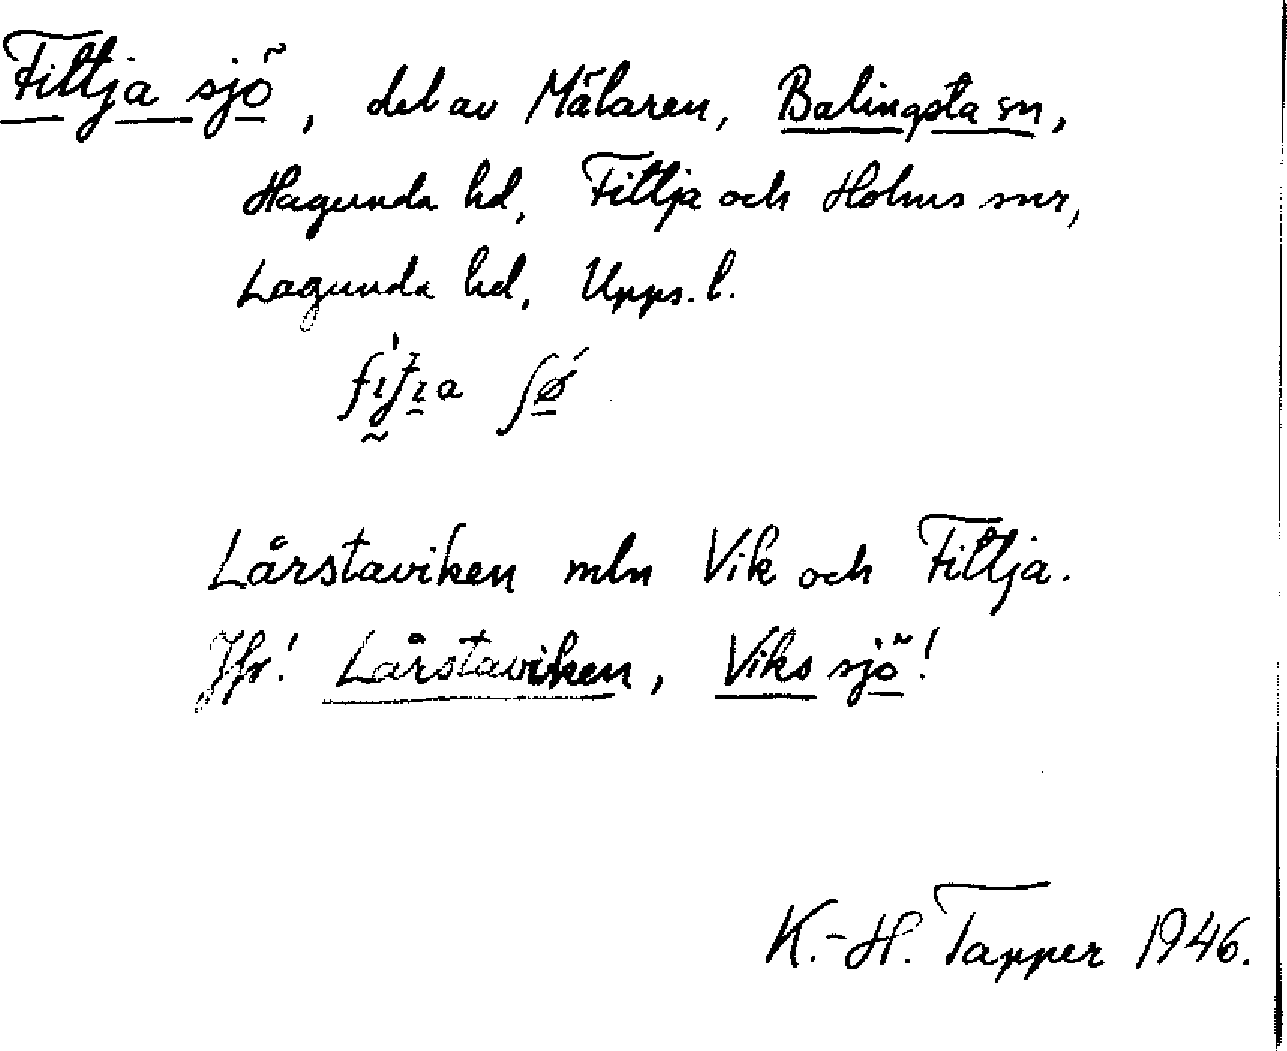 Fittja sjö, del av Mälaren, Balingsta sn,
Hagunda hd, Fittja och Holms snr,
Lagunda hd, Upps. l.
Lårstaviken mln Vik och Fittja.
Jfr! Lårstaviken, Viks sjö!
K.-H. Tapper 1946.